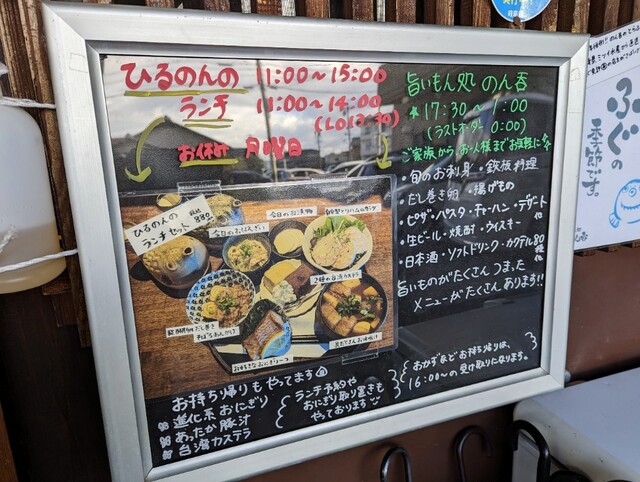 ひるのんの 11:00～15:00
ランチ 11:00～14:00
(LO13:30)
お休み 月曜日
ひるのんの
ランチセット
税込
880
今日のお漬物
自家製とりハムのサラダ
今日のおばんざい
2種の台湾カステラ
お持ち帰りもやってます
進化系おにぎり
あったか豚汁
台湾カステラ
ランチ予約や
おにぎり取り置きも
やっております
旨いもん処 のん呑
★17:30～1:00
(ラストオーダー 0:00)
ご家族から、お一人様までお気軽に
・旬のお刺身・鉄板料理
・だし巻き卵・揚げもの
・ピザ・パスタ・チャーハン・デザート
他
・生ビール・焼酎・ウイスキー
・日本酒・ソフトドリンク・カクテル80
種他
旨いものが"たくさん"つまった
メニューが"たくさん"あります!!
おかずなどお持ち帰りは、
16:00～の受け取りになります。
ふぐの
季節です。